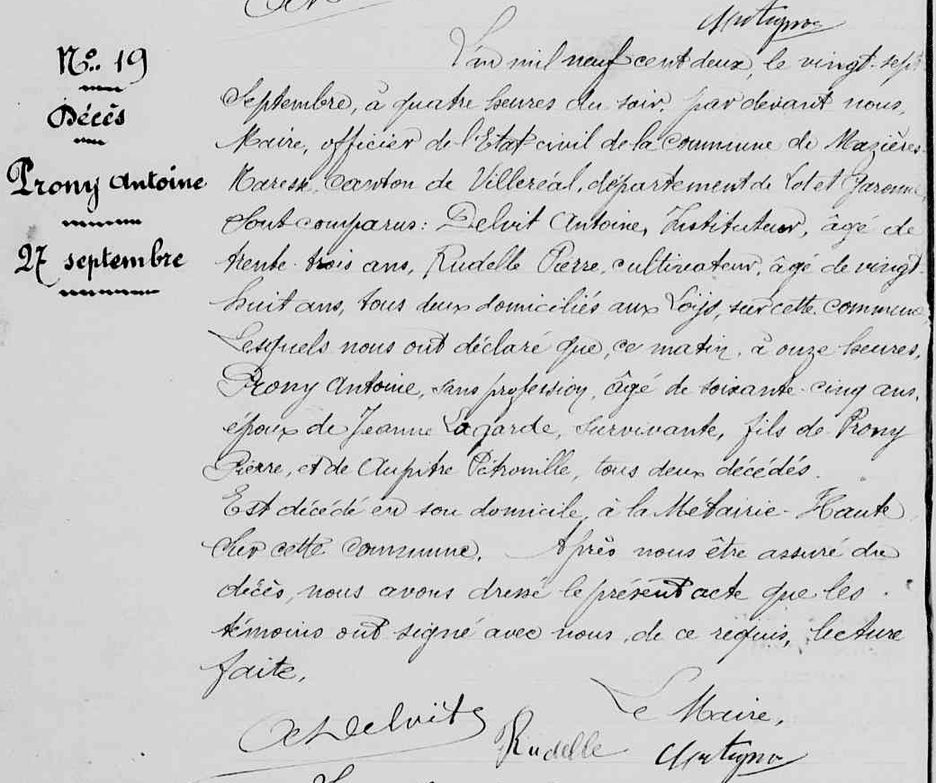 Nos 19
Décès
Prony Antoine
27 septembre
L'an mil neuf cent deux, le vingt-sept
Septembre, à quatre heures du soir, par devant nous,
Maire, officier de l'Etat civil de la commune de Mazières-
Naresse, canton de Villeréal, département de Lot et Garonne
Sont comparus: Delvit Antoine, Instituteur, âgé de
trente-trois ans, Rudelle Pierre, cultivateur, âgé de vingt-
huit ans, tous deux domiciliés aux sur cette commune
Lesquels nous ont déclaré que, ce matin, à onze heures,
Prony Antoine, sans profession, âgé de soixante-cinq ans,
époux de Jeanne Lagarde, survivante, fils de Prony
Pierre, et de Pétronille, tous deux décédés.
Est décédé en son domicile, à la Métairie-Haute
sur cette commune. Après nous être assuré du
décès, nous avons dressé le présent acte que les
témoins ont signé avec nous, de ce requis, lecture
faite.
Le Maire,
Delvit
Rudelle